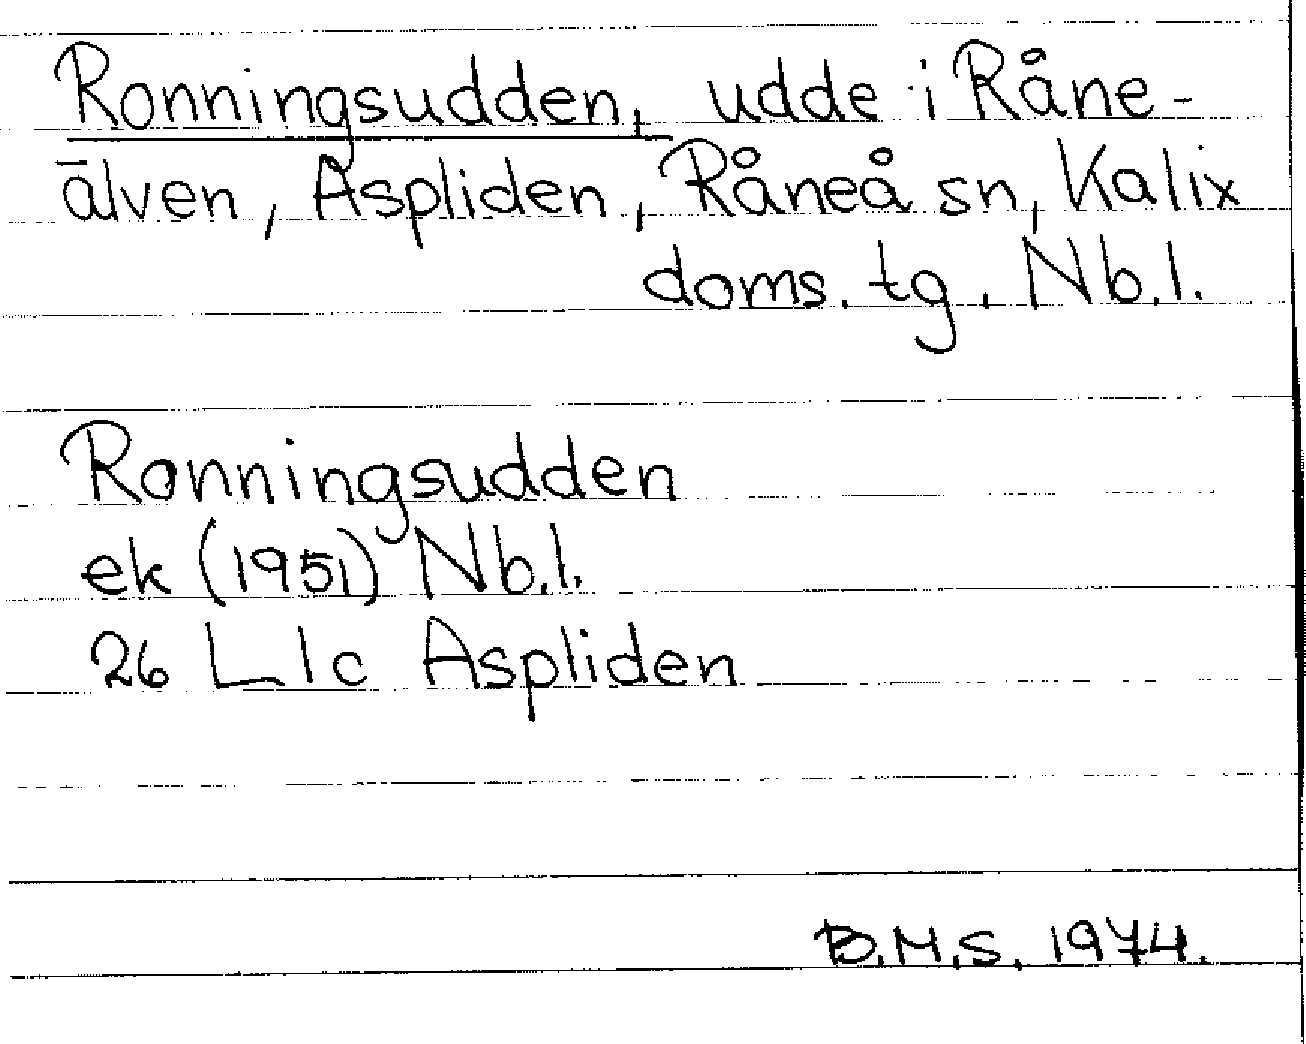 Ronningsudden, udde i Råne-
älven, Aspliden, Råneå sn, Kalix
doms. tg. Nb.l.
Ronningsudden
ek (1951) Nb.l.
26 L 1c Aspliden
B.M.S. 1974.